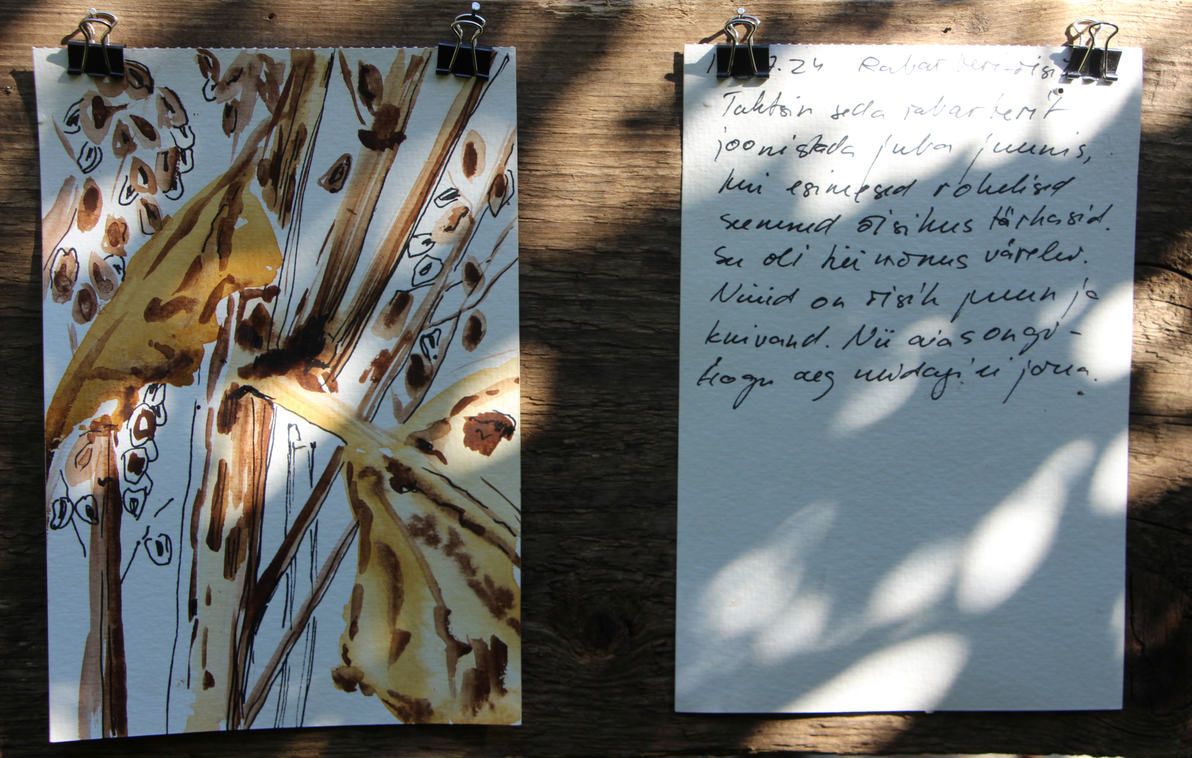 7.24 Rabarberi-õisi
Tahtsin seda rabarberit
joonistada juba juunis,
kui esimesed rohelised
seemned õisikus tärkasid.
See oli kui rõõmus värelev.
Nüüd on õisik pruun ja
kuivand. Nii aias ongi -
kogu aeg midagi ei jõua.